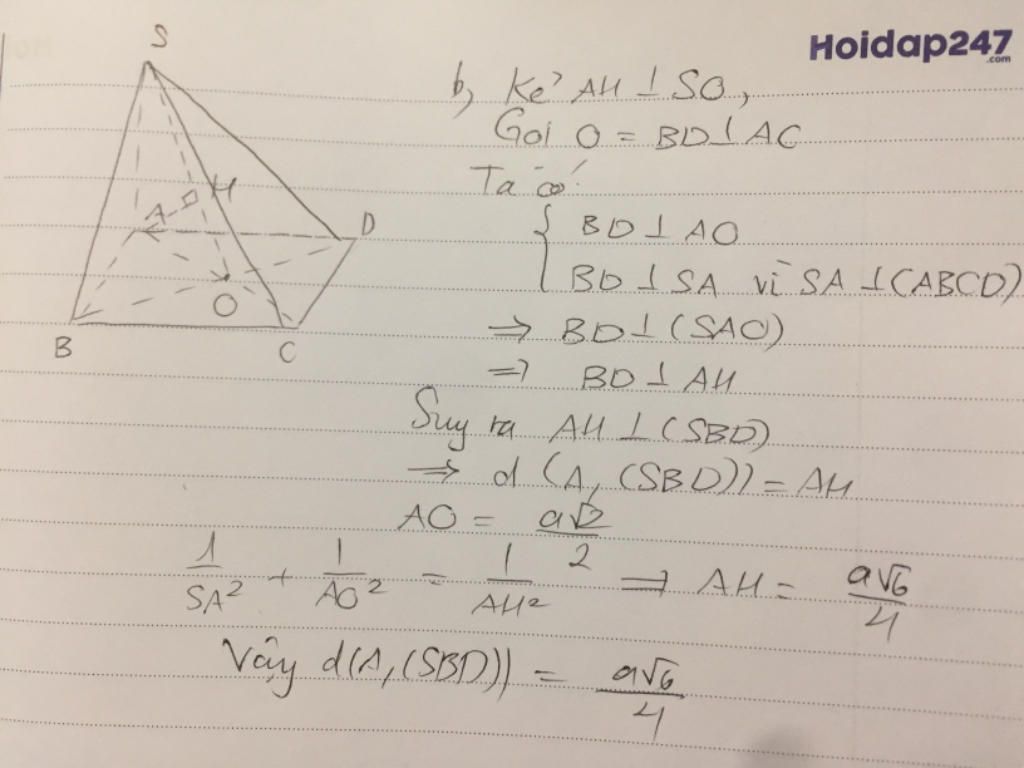 Hoidap247
.com
S
H
A
D
O
B
C
b, Kẻ AH ⊥ SO,
Gọi O = BD ⊥ AC
Ta có:
{ BD ⊥ AO
BD ⊥ SA vì SA ⊥ (ABCD)
⇒ BD ⊥ (SAO)
⇒ BD ⊥ AH
Suy ra AH ⊥ (SBD)
⇒ d (A, (SBD)) = AH
AO = a√2/2
1/SA² + 1/AO² = 1/AH² ⇒ AH = a√6/4
Vậy d(A,(SBD)) = a√6/4